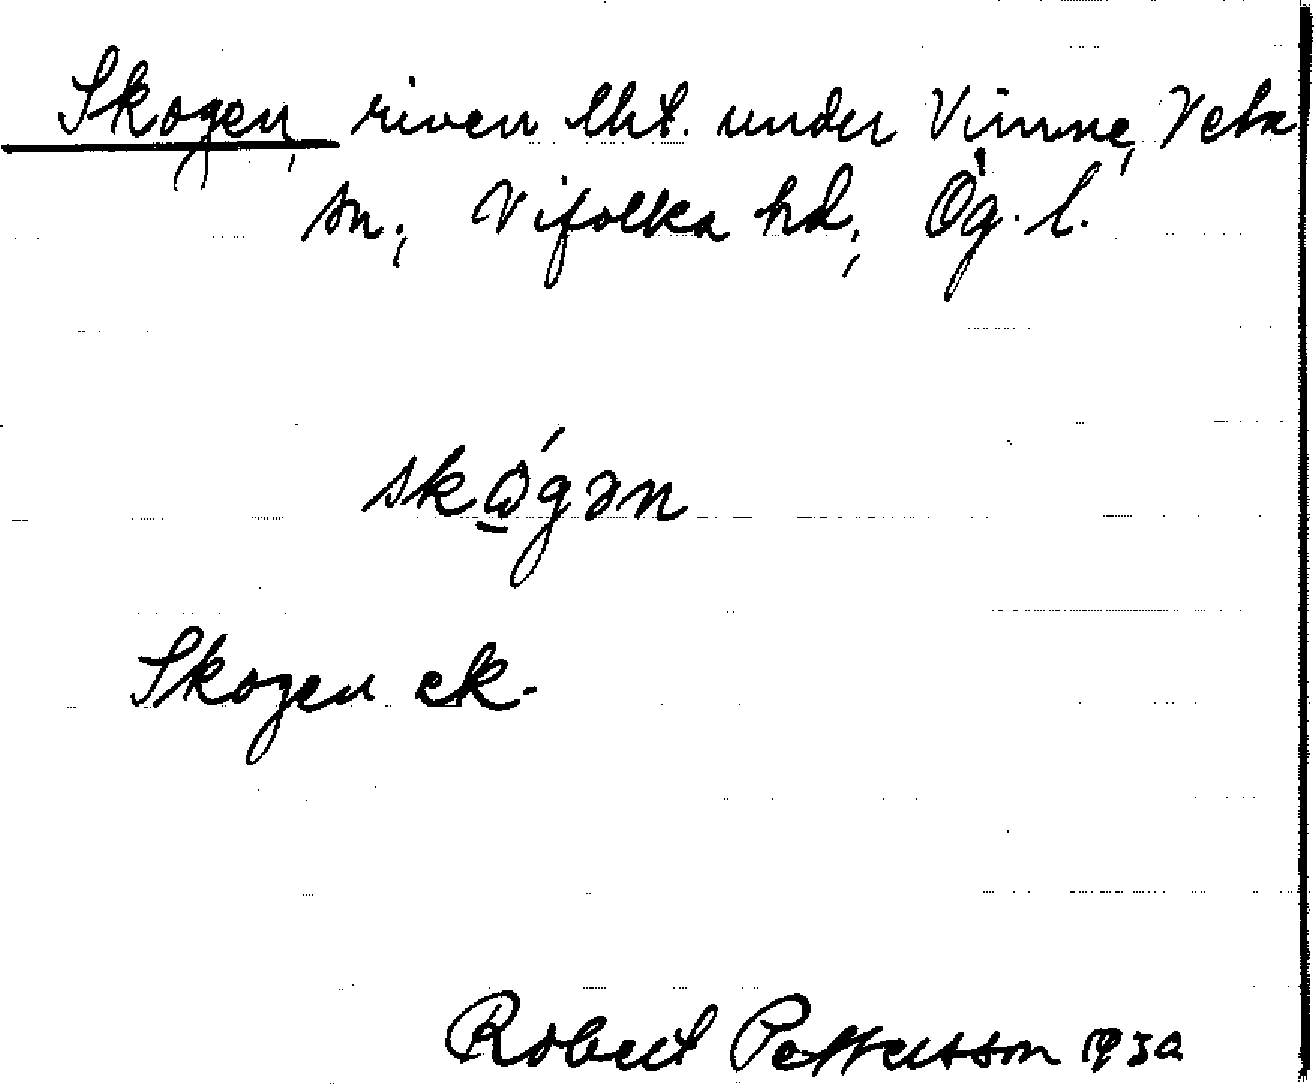 Skogen, riven lht. under Vinne, Veta
sn., Vifolka hd, Ög. l.
skǫ́gən
Skogen ek.
Robert Pettersson